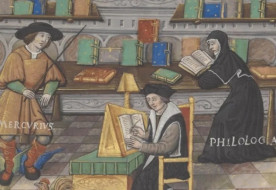 MERCVRIVS
PHILOLOGIA